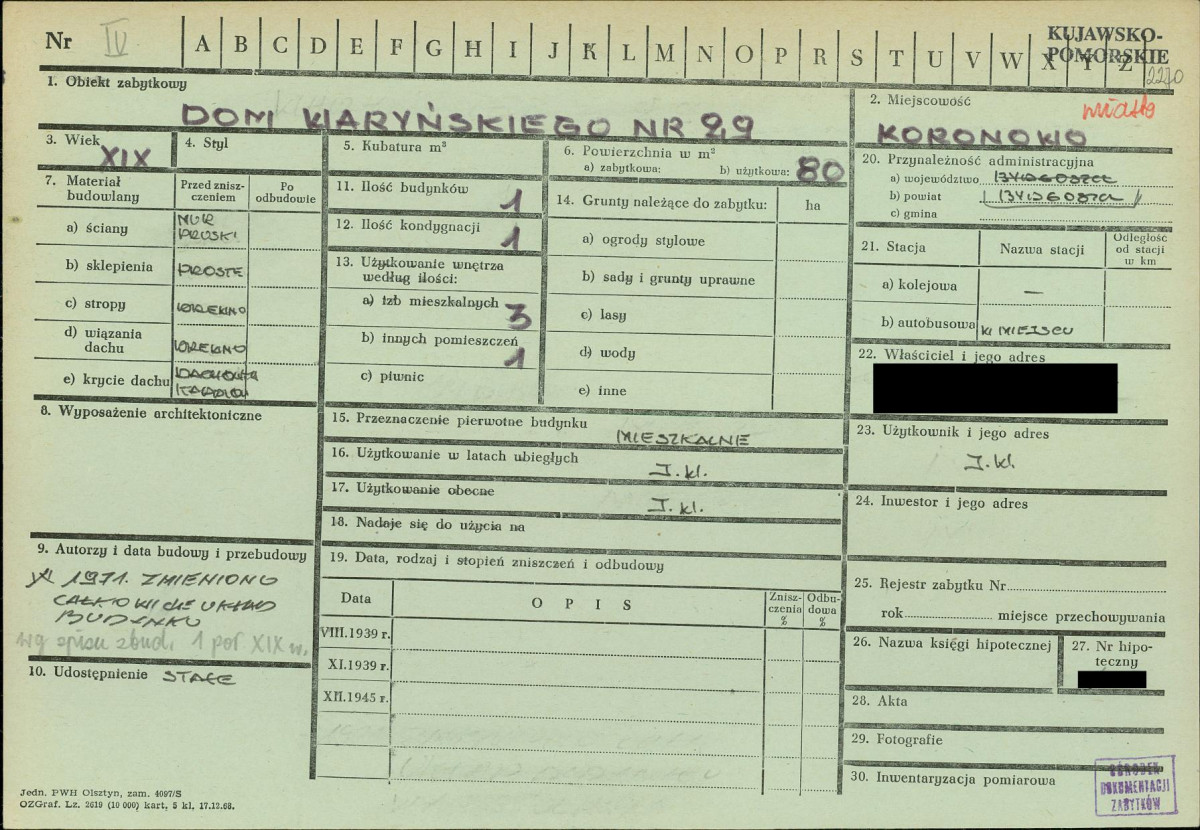 Nr IV A B C D E F G H I J K L M N O P R S T U V W X Y Z
KUJAWSKO-
POMORSKIE
2270
1. Obiekt zabytkowy
DOM WARYŃSKIEGO NR 29
2. Miejscowość
miasto
KORONOWO
3. Wiek XIX
4. Styl
5. Kubatura m³
6. Powierzchnia w m²
a) zabytkowa: b) użytkowa: 80
7. Materiał budowlany
Przed zniszczeniem
Po odbudowie
a) ściany MUR PRUSKI
b) sklepienia PROSTE
c) stropy DREWNO
d) wiązania dachu DREWNO
e) krycie dachu DACHÓWKA
11. Ilość budynków 1
12. Ilość kondygnacji 1
13. Użytkowanie wnętrza według ilości:
a) izb mieszkalnych 3
b) innych pomieszczeń 1
c) piwnic
14. Grunty należące do zabytku: ha
a) ogrody stylowe
b) sady i grunty uprawne
c) lasy
d) wody
e) inne
20. Przynależność administracyjna
a) województwo BYDGOSZCZ
b) powiat BYDGOSZCZ
c) gmina
21. Stacja Nazwa stacji Odległość od stacji w km
a) kolejowa —
b) autobusowa W MIEJSCU
22. Właściciel i jego adres
8. Wyposażenie architektoniczne
15. Przeznaczenie pierwotne budynku MIESZKALNE
16. Użytkowanie w latach ubiegłych J. w.
17. Użytkowanie obecne J. w.
18. Nadaje się do użycia na
23. Użytkownik i jego adres
J. w.
24. Inwestor i jego adres
9. Autorzy i data budowy i przebudowy
1971. ZMIENIONO
CAŁKOWICIE UKŁAD
BUDYNKU
wg spisu zbud. 1 poł. XIX w.
10. Udostępnienie STAŁE
19. Data, rodzaj i stopień zniszczeń i odbudowy
Data O P I S Zniszczenia % Odbudowa %
VIII.1939 r.
XI.1939 r.
XII.1945 r.
25. Rejestr zabytku Nr
rok miejsce przechowywania
26. Nazwa księgi hipotecznej
27. Nr hipoteczny
28. Akta
29. Fotografie
30. Inwentaryzacja pomiarowa
OŚRODEK
DOKUMENTACJI
ZABYTKÓW
Jedn. PWH Olsztyn, zam. 4097/S
OZGraf. Lz. 2619 (10 000) kart. 5 kl. 17.12.68.